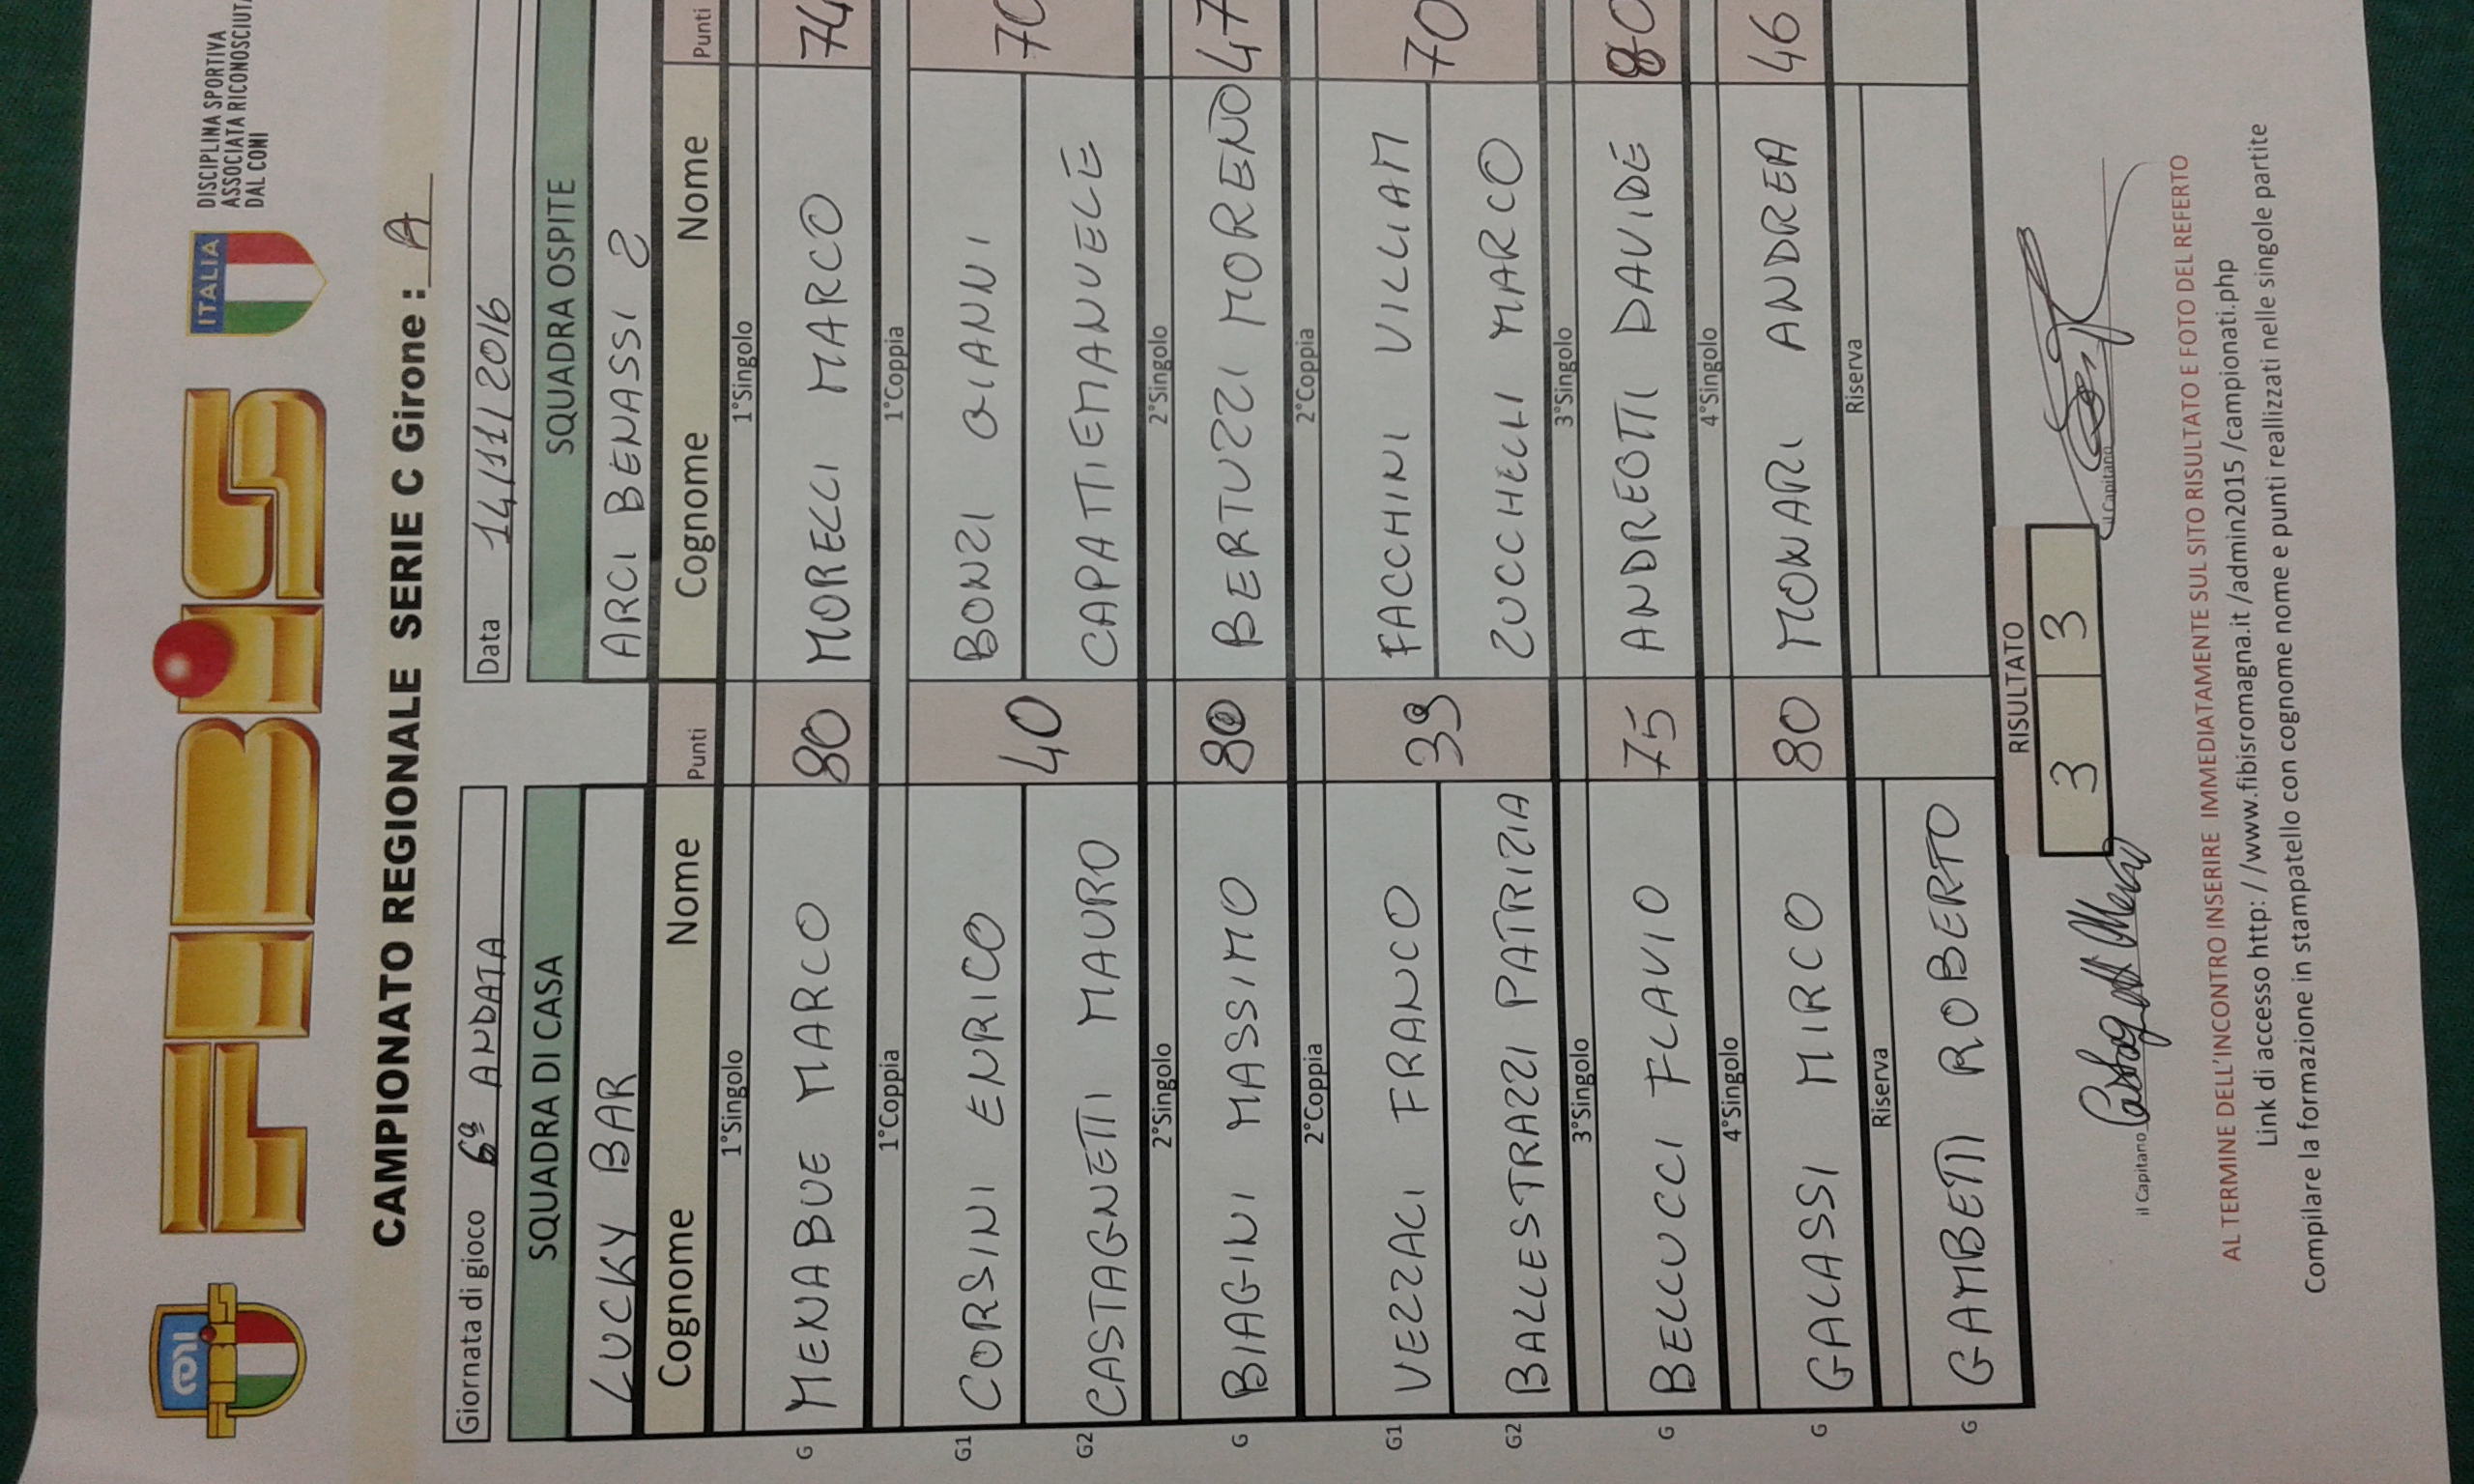 FIBiS
ITALIA
DISCIPLINA SPORTIVA
ASSOCIATA RICONOSCIUTA
DAL CONI
CAMPIONATO REGIONALE SERIE C Girone : A
Giornata di gioco 6ª ANDATA Data 14/11/2016
SQUADRA DI CASA SQUADRA OSPITE
LUCKY BAR ARCI BENASSI 2
Cognome Nome Punti Cognome Nome Punti
1°Singolo 1°Singolo
G MENABUE MARCO 80 MORELLI MARCO 74
1°Coppia 1°Coppia
G1 CORSINI ENRICO 40 BONZI GIANNI 70
G2 CASTAGNETTI MAURO CAPATTI EMANUELE
2°Singolo 2°Singolo
G BIAGINI MASSIMO 80 BERTUZZI MORENO 47
2°Coppia 2°Coppia
G1 VEZZALI FRANCO 39 FACCHINI VILLIAM 70
G2 BALLESTRAZZI PATRIZIA ZUCCHELLI MARCO
3°Singolo 3°Singolo
G BELLUCCI FLAVIO 75 ANDREOTTI DAVIDE 80
4°Singolo 4°Singolo
G GALASSI MIRCO 80 MONARI ANDREA 46
Riserva Riserva
G GAMBETTI ROBERTO
RISULTATO
3 3
il Capitano il Capitano
AL TERMINE DELL'INCONTRO INSERIRE IMMEDIATAMENTE SUL SITO RISULTATO E FOTO DEL REFERTO
Link di accesso http: //www.fibisromagna.it /admin2015 /campionati.php
Compilare la formazione in stampatello con cognome nome e punti reallizzati nelle singole partite